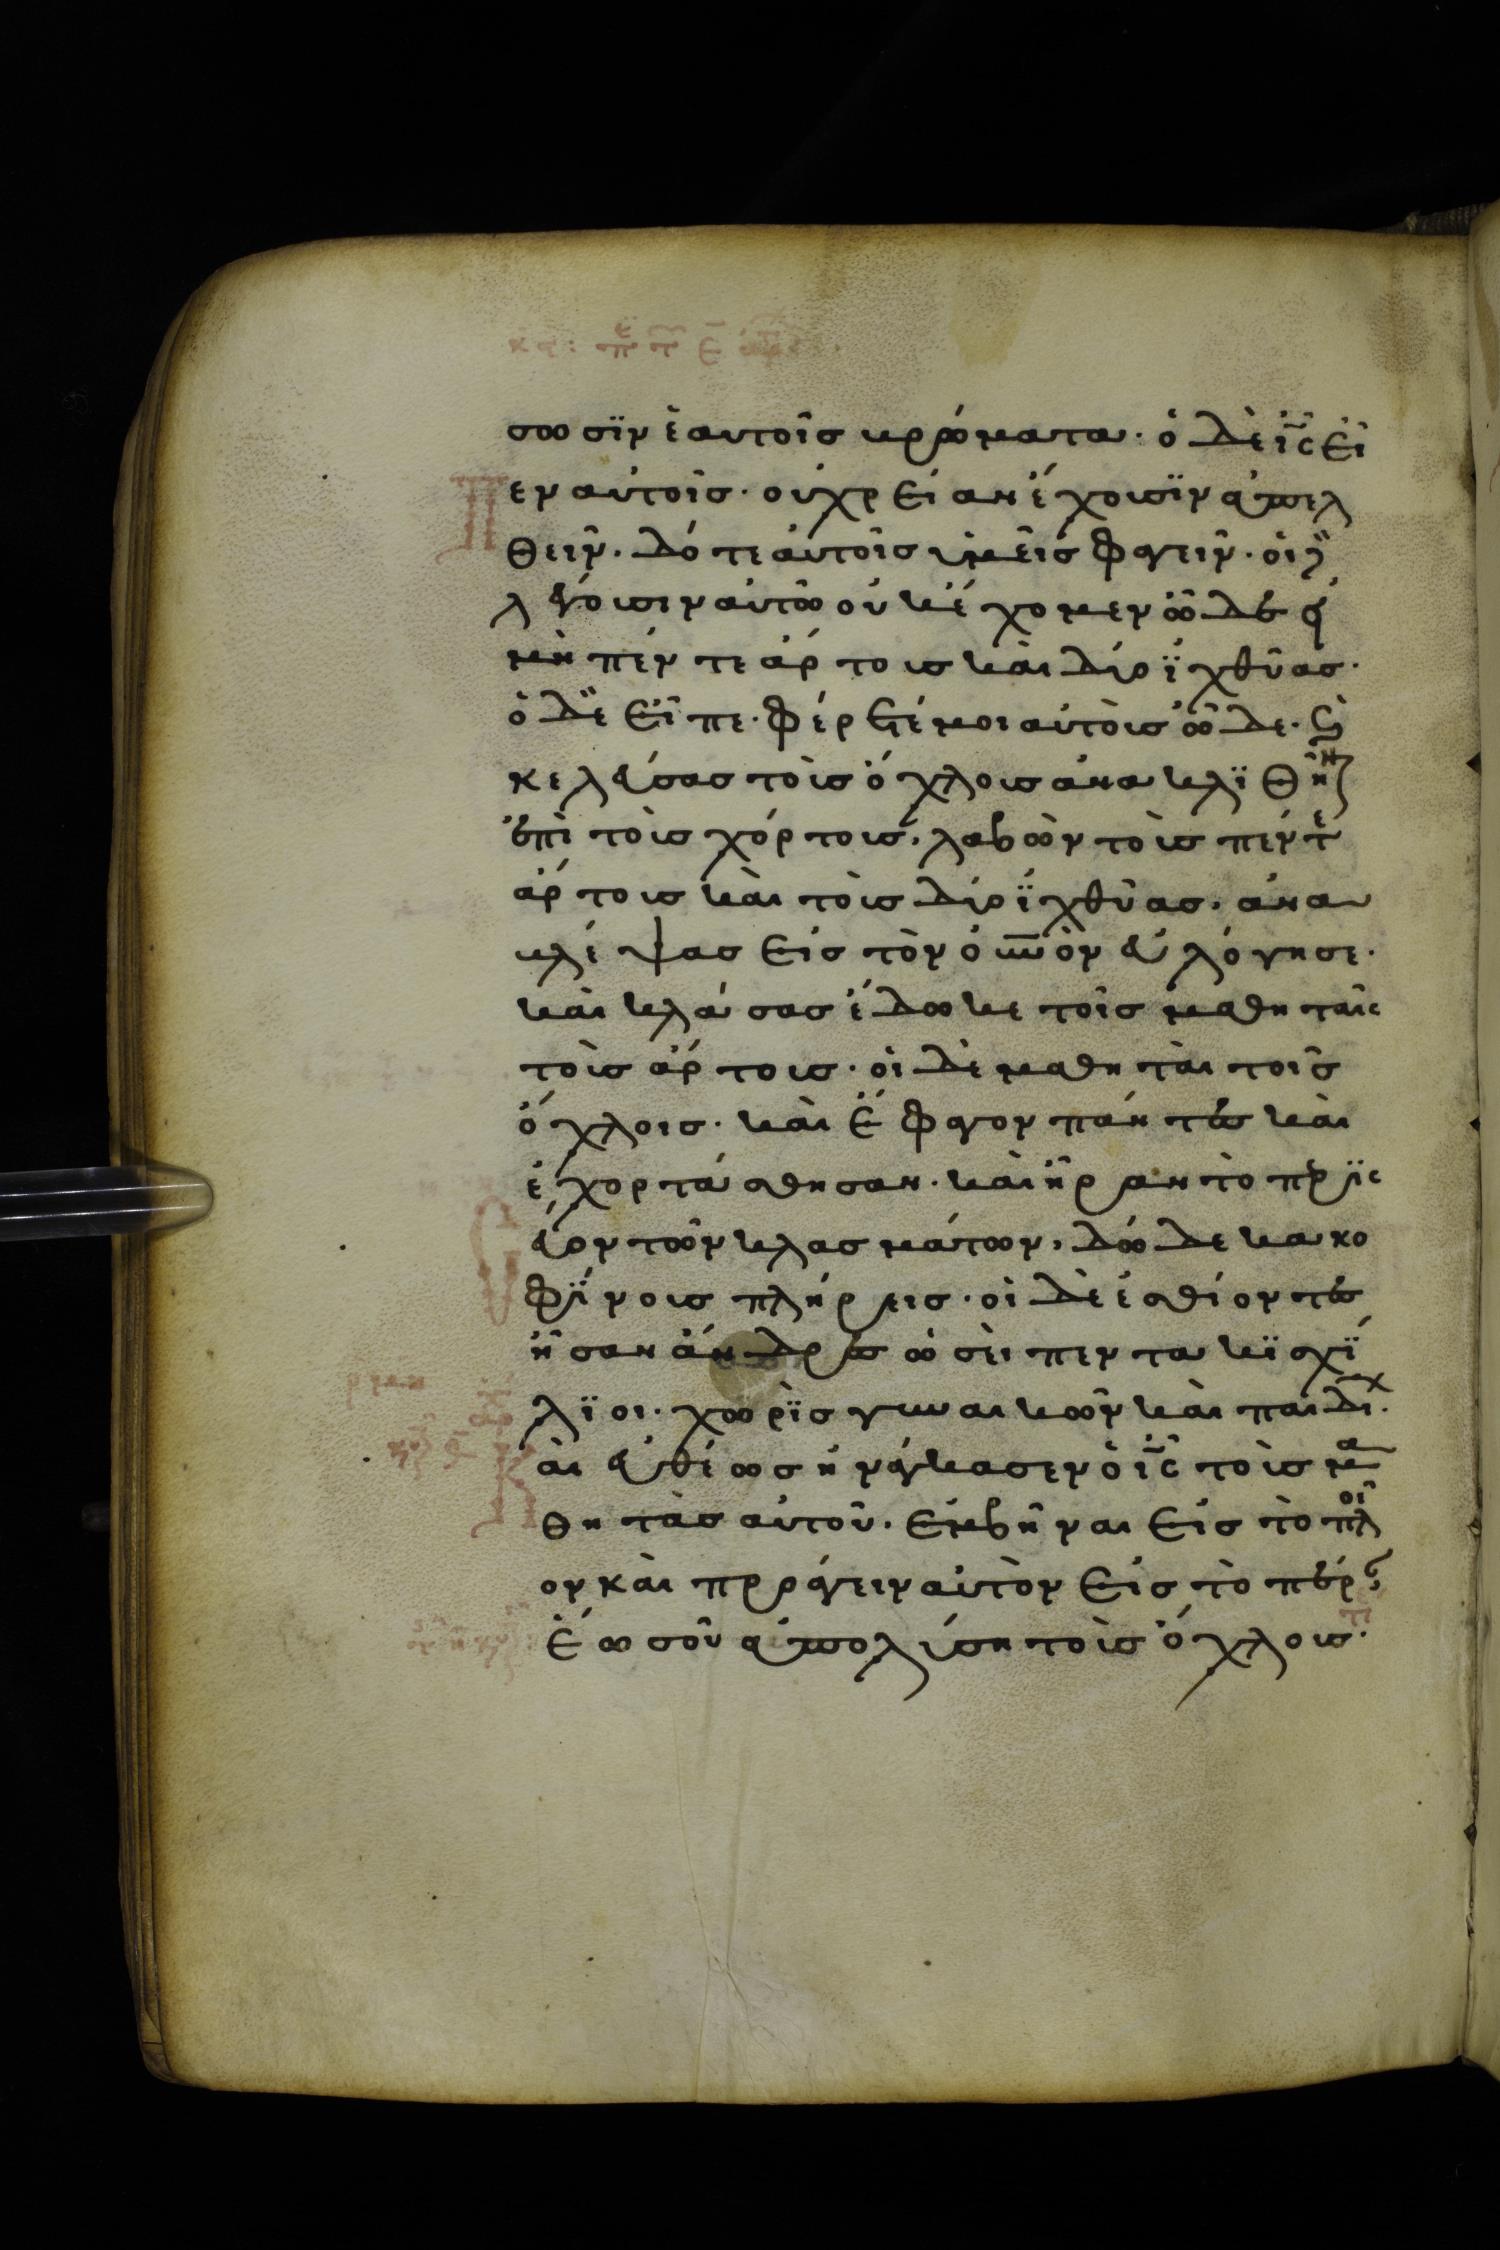 σωσϊν ἑαυτοῖς βρώματα· ὁ δὲ ἰ̅ς̅ εἶ
εν αὐτοῖς· οὐ χρείαν ἔχουσϊν ἀπελ
θεῖν· δότε αὐτοῖς ὑμεῖς φαγεῖν· οἱ δ̀
λέγουσιν αὐτῶ οὐκ ἔχομεν ὧδε εἰ
μὴ πέντε ἄρτους καὶ δύο ἰχθύας·
ὁ δὲ εἶπε· φέρετέ μοι αὐτοὺς ὧδε· ϗ
κελεύσας τοὺς ὄχλους ἀνακλϊθῆν
ἐπὶ τοὺς χόρτους, λαβὼν τοὺς πέντε
ἄρτους καὶ τοὺς δύο ἰχθύας, ἀνα
βλέψας εἰς τὸν ο̅υ̅ν̅ὸν εὐλόγησε·
καὶ κλάσας ἔδωκε τοῖς μαθηταῖς
τοὺς ἄρτους· οἱ δὲ μαθηταὶ τοῖς
ὄχλοις· καὶ ἔφαγον πάντες καὶ
ἐχορτάσθησαν· καὶ ἦραν τὸ περισ
εῦον τῶν κλασμάτων, δώδεκα κο
φΐνους πλήρεις· οἱ δὲ ἐσθίοντες
ἦσαν ἄνδρες ὡσεὶ πεντακϊσχΐ
λϊοι· χωρὶς γυναικῶν καὶ παιδί·
αὶ εὐθέως ἠνάγκασεν ὁ ἰ̅ς̅ τοὺς μα
θητὰς αὐτοῦ· ἐμβῆναι εἰς τὸ πλοῖ
ον καὶ προάγειν αὐτὸν εἰς τὸ πέρ
ἕως οὗ ἀπολύση τοὺς ὄχλους·